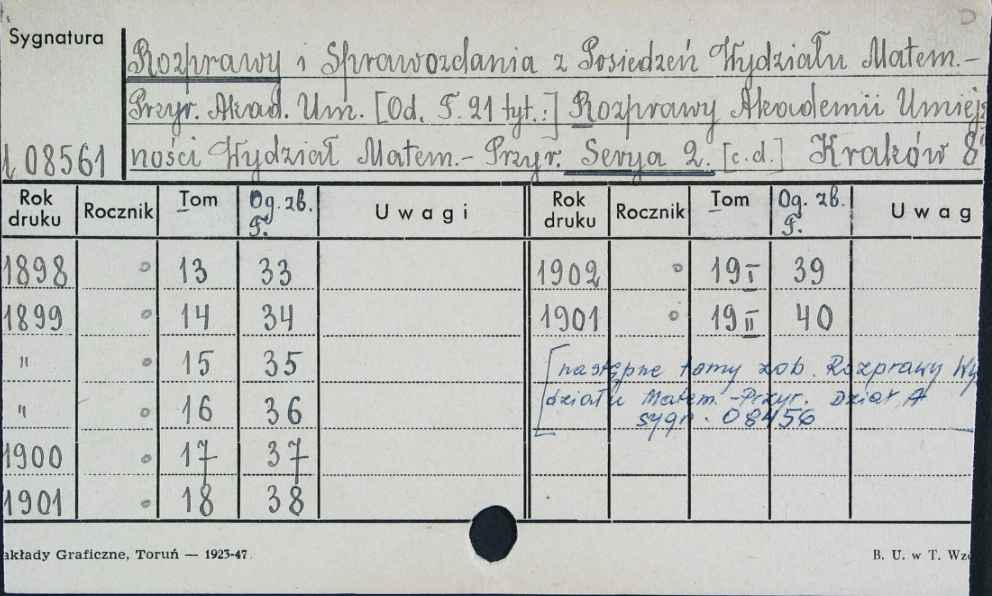 Sygnatura
Rozprawy i Sprawozdania z Posiedzeń Wydziału Matem.-
Przyr. Akad. Um. [Od. T. 21 tyt.:] Rozprawy Akademii Umiej
08561 ności Wydział Matem.- Przyr. Serya 2. [c.d.] Kraków 8°
Rok druku Rocznik Tom Og. zb. T. Uwagi Rok druku Rocznik Tom Og. zb. T. Uwag
1898 o 13 33 1902 o 19 I 39
1899 o 14 34 1901 o 19 II 40
" o 15 35 [następne tomy zob. Rozprawy Wy
" o 16 36 działu Matem.-Przyr. Dział A
sygn. 08456
1900 o 17 37
1901 o 18 38
akłady Graficzne, Toruń — 1923-47 B. U. w T. Wzó